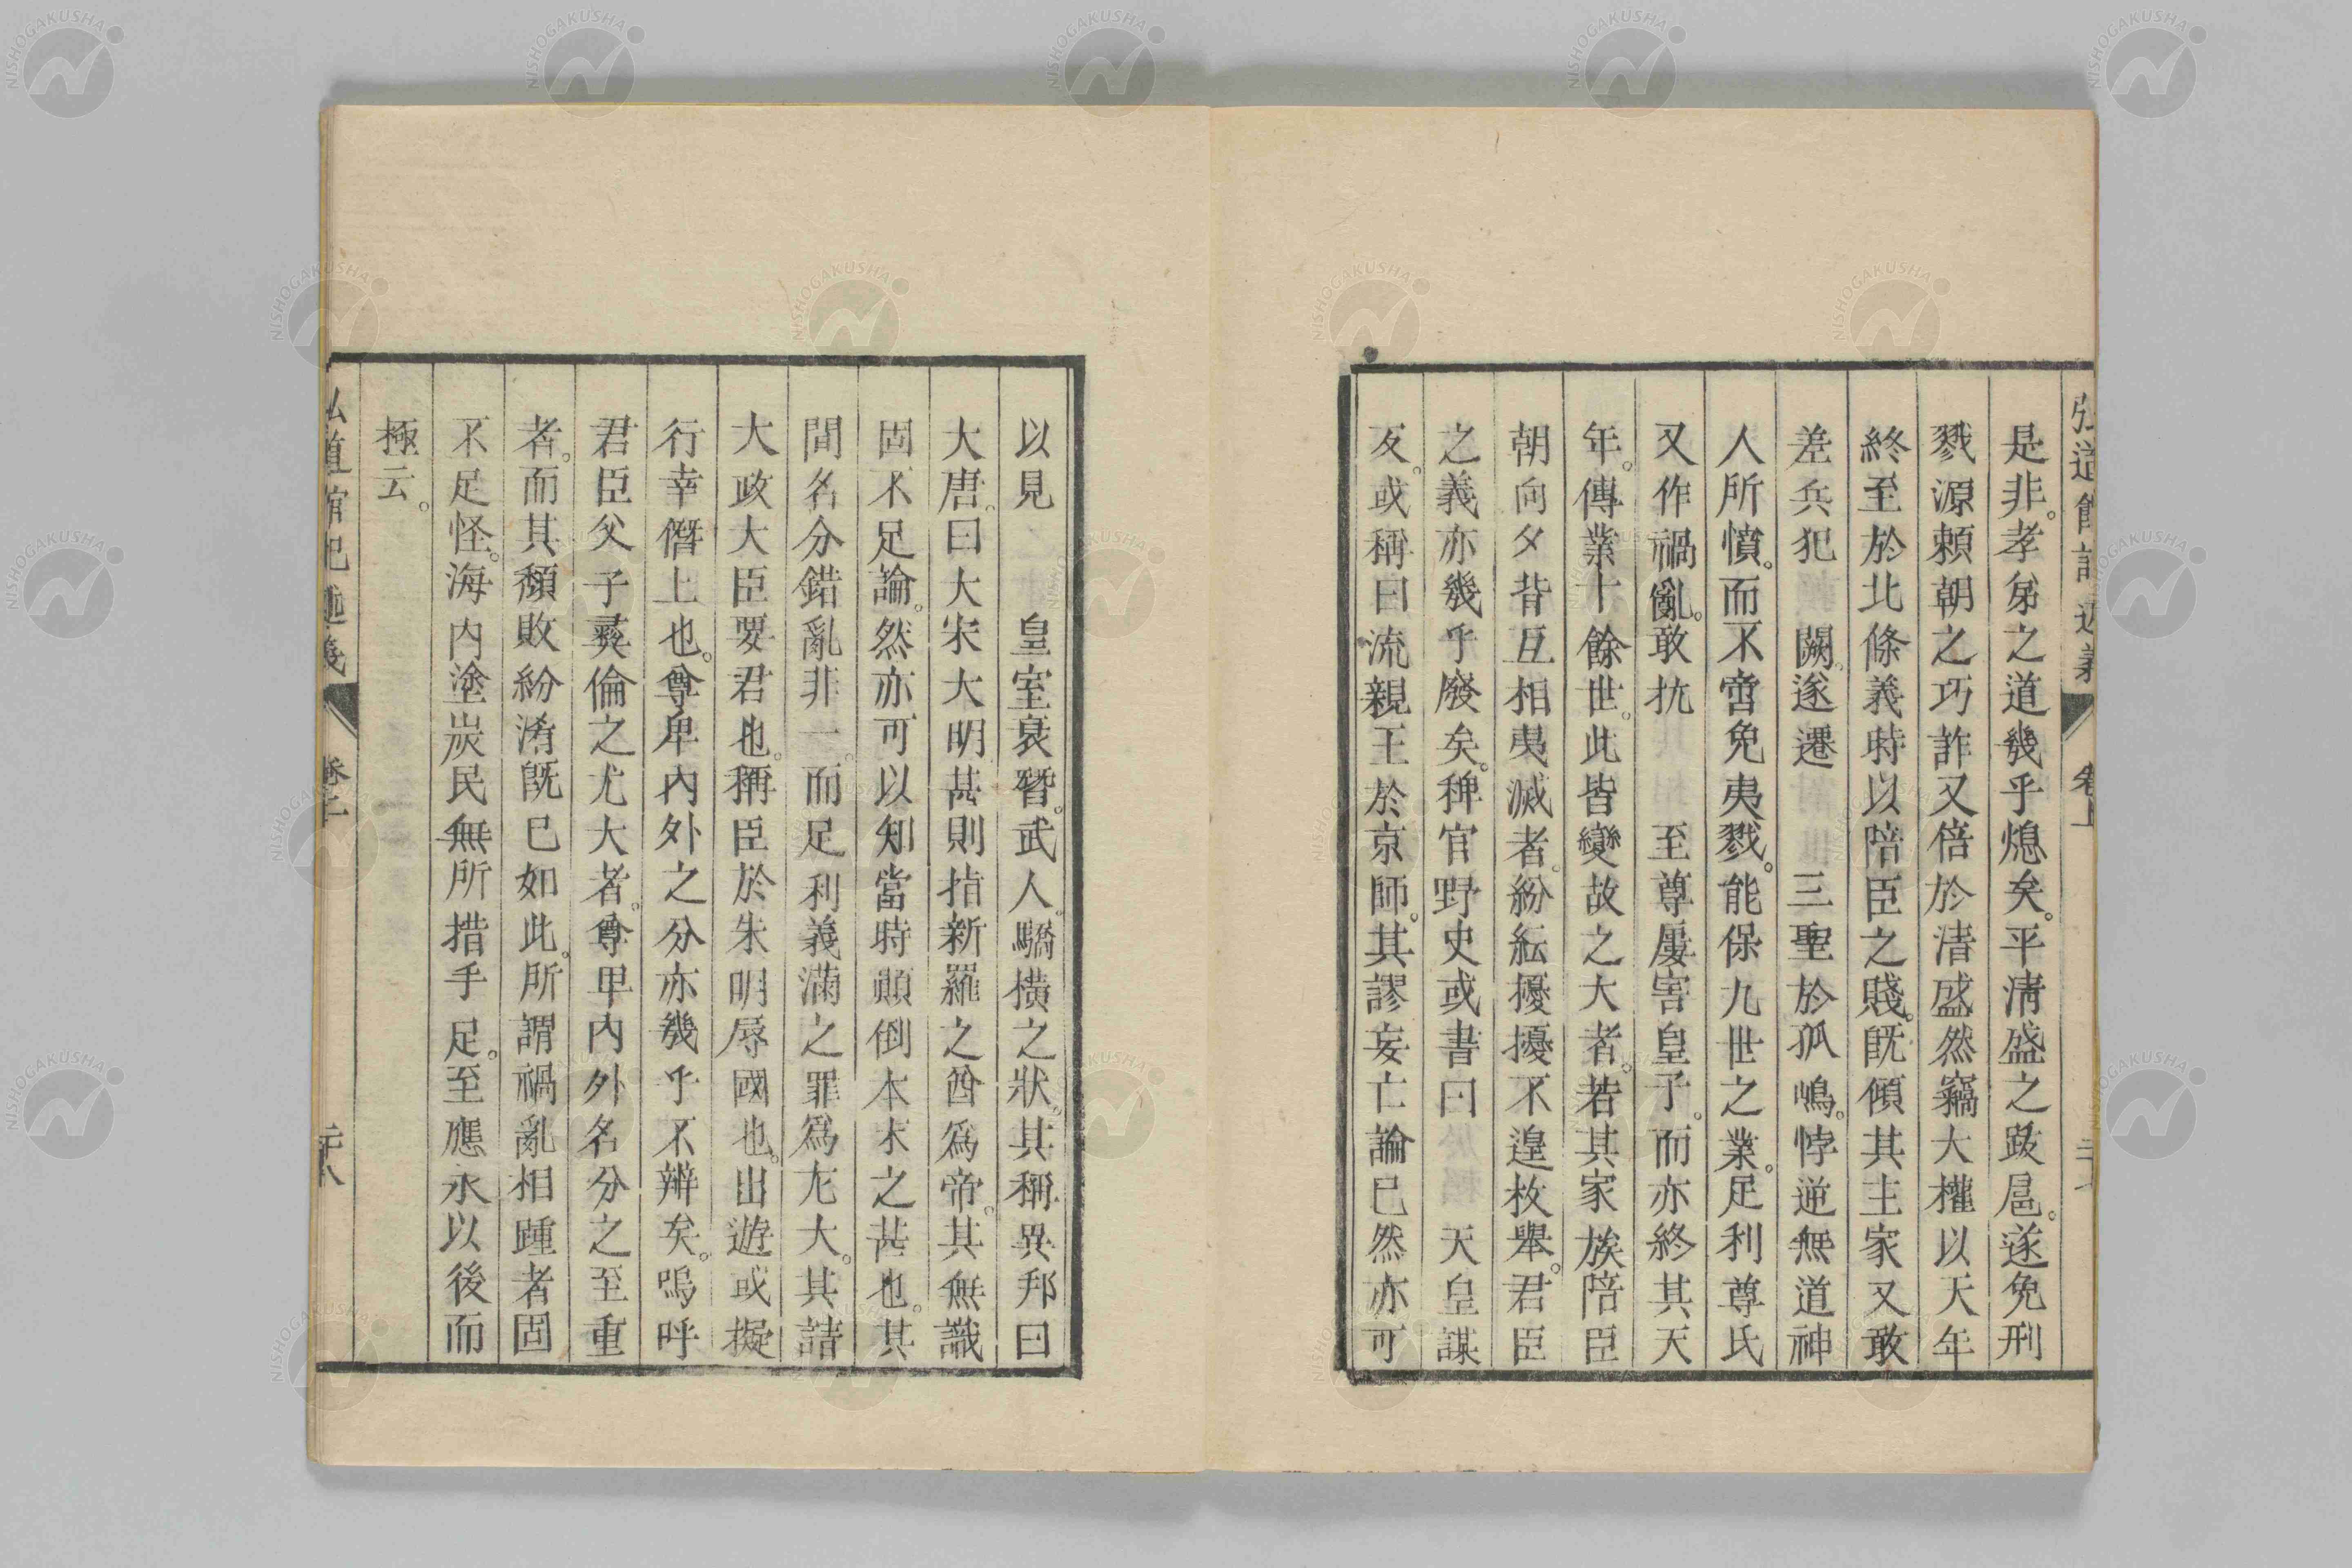 弘道館記述義 卷上
是非。孝弟之道幾乎熄矣。平淸盛之跋扈。遂免刑
戮源賴朝之巧詐又倍於淸盛然竊大權以天年
終至於北條義時以陪臣之賤。旣傾其主家又敢
差兵犯 闕。遂遷 三聖於孤嶋。悖逆無道神
人所憤。而不啻免夷戮。能保九世之業。足利尊氏
又作禍亂。敢抗 至尊屢害皇子。而亦終其天
年。傳業十餘世。此皆變故之大者。若其家族陪臣
朝向夕背互相夷滅者。紛紜擾擾不遑枚舉。君臣
之義亦幾乎廢矣。稗官野史或書曰 天皇謀
反。或稱曰流親王於京師。其謬妄亡論已然亦可
以見 皇室衰替。武人。驕橫之狀。其稱異邦曰
大唐。曰大宋大明甚則指新羅之酋爲帝。其無識
固不足論。然亦可以知當時顚倒本末之甚也。其
間名分錯亂非一。而足利義滿之罪爲尤大。其請
大政大臣要君也。稱臣於朱明辱國也。出遊或擬
行幸僭上也。尊卑內外之分亦幾乎不辨矣。嗚呼
君臣父子彛倫之尤大者。尊卑內外名分之至重
者。而其頽敗紛淆旣已如此。所謂禍亂相踵者固
不足怪。海內塗炭民無所措手足。至應永以後而
極云。
弘道館記述義 卷上 二十八
NISHOGAKUSHA